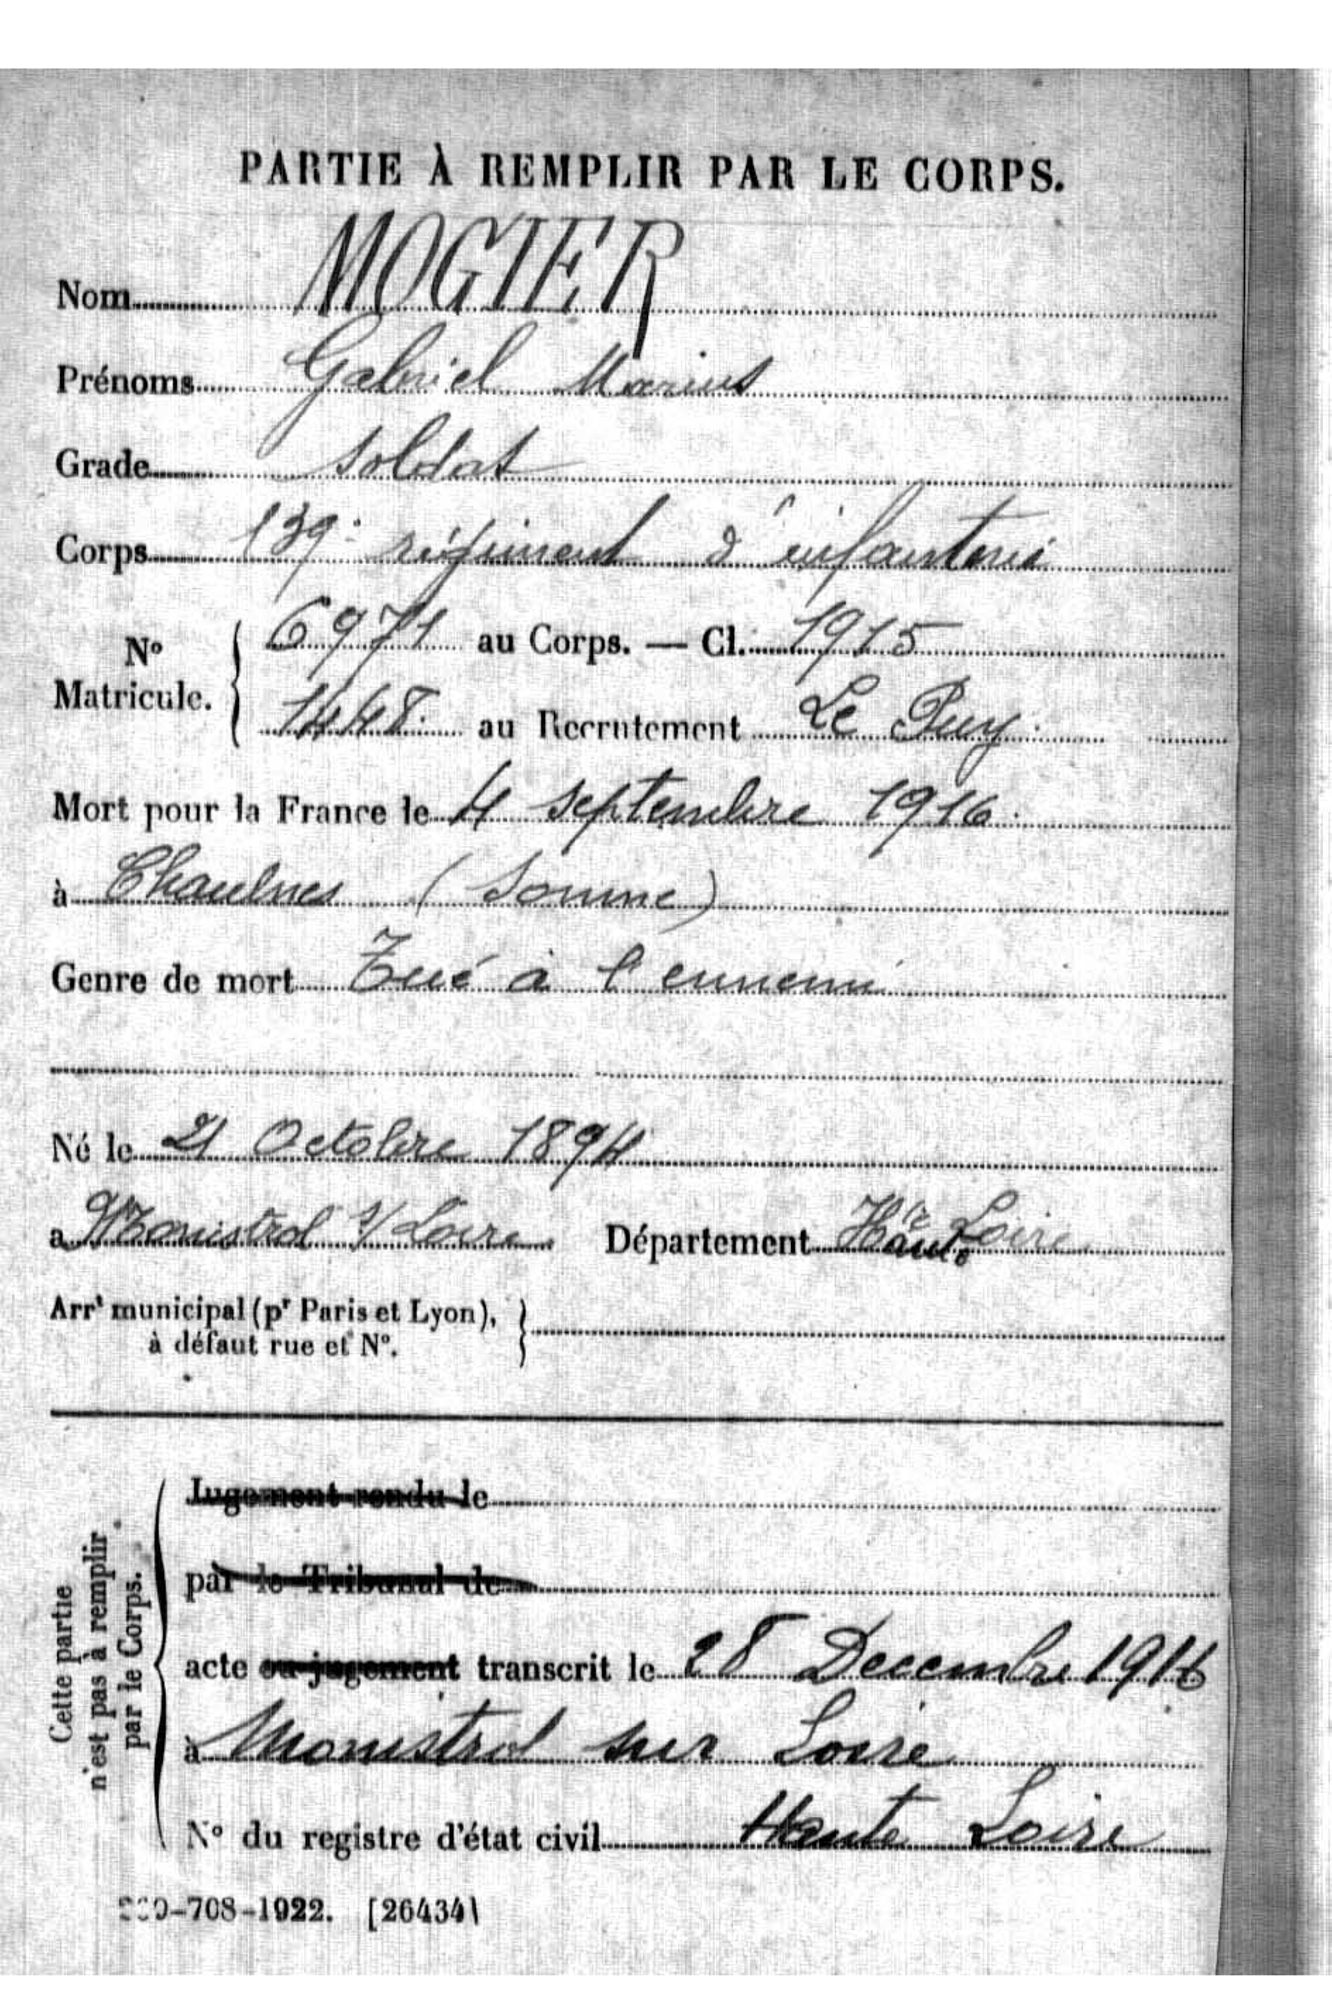 PARTIE À REMPLIR PAR LE CORPS.
Nom MOGIER
Prénoms Gabriel Marius
Grade soldat
Corps 139e régiment d'infanterie
No Matricule. { 6971 au Corps. — Cl. 1915
1448. au Recrutement Le Puy.
Mort pour la France le 4 septembre 1916.
à Chaulnes (Somme)
Genre de mort Tué à l'ennemi
Né le 21 Octobre 1894
a Monistrol s/Loire Département Hte Loire Haute
Arrt municipal (pr Paris et Lyon),
à défaut rue et No. }
Cette partie
n'est pas à remplir
par le Corps.
Jugement rendu le
par le Tribunal de
acte ou jugement transcrit le 28 Decembre 1916
à Monistrol sur Loire
No du registre d'état civil Haute Loire
-708-1922. [26434]